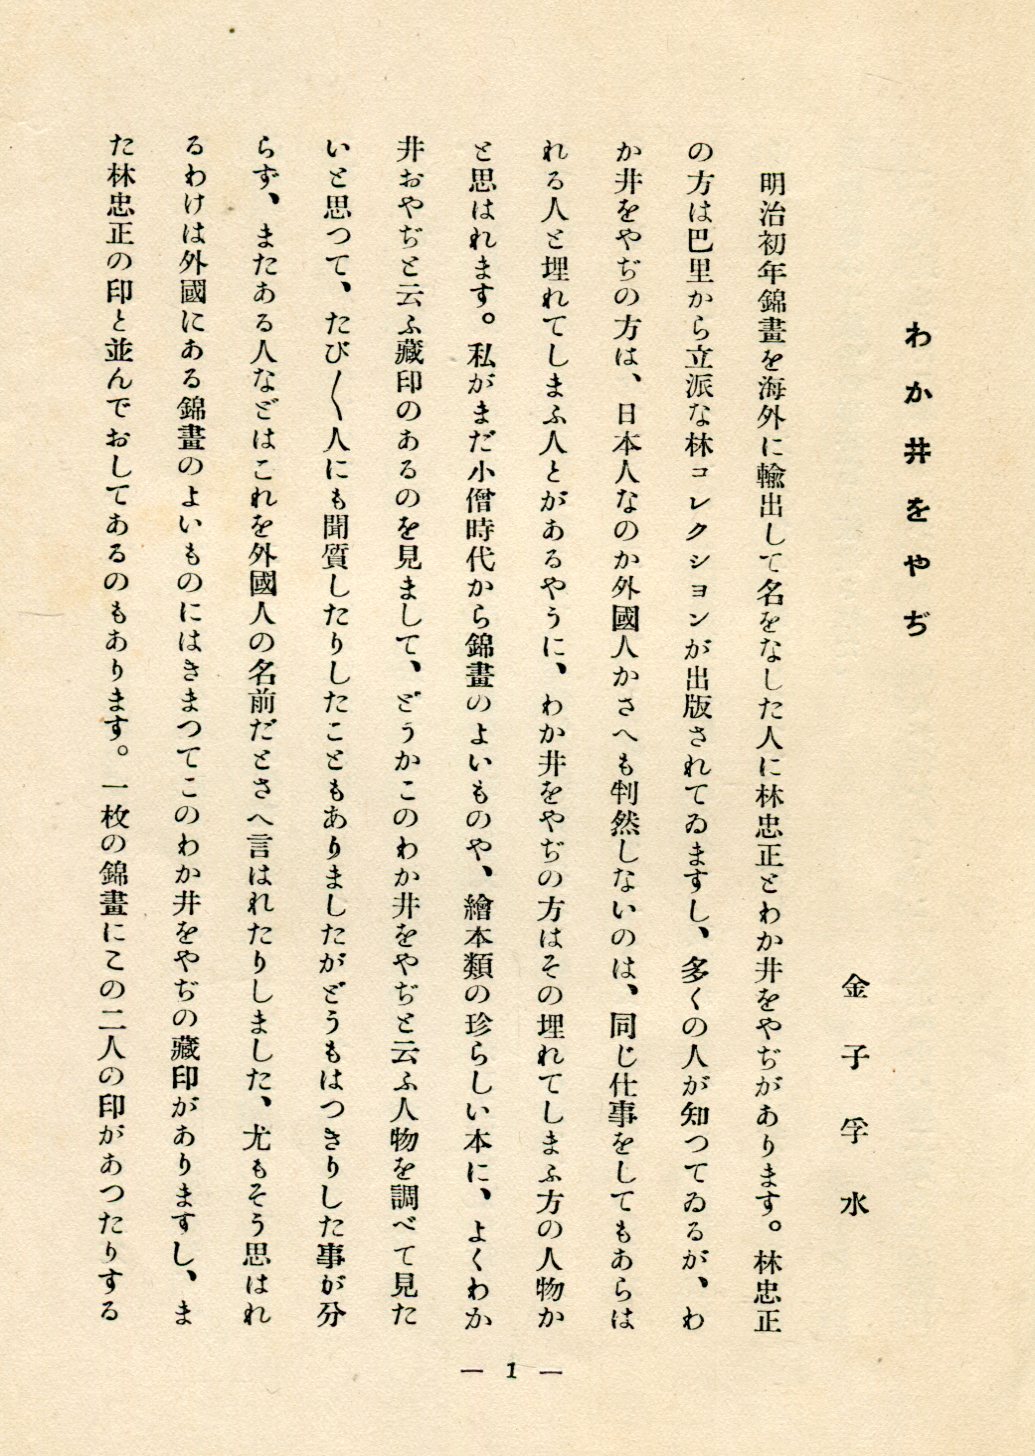 わか井をやぢ
金子孚水
明治初年錦畫を海外に輸出して名をなした人に林忠正とわか井をやぢがあります。林忠正
の方は巴里から立派な林コレクションが出版されてゐますし、多くの人が知つてゐるが、わ
か井をやぢの方は、日本人なのか外國人かさへも判然しないのは、同じ仕事をしてもあらは
れる人と埋れてしまふ人とがあるやうに、わか井をやぢの方はその埋れてしまふ方の人物か
と思はれます。私がまだ小僧時代から錦畫のよいものや、繪本類の珍らしい本に、よくわか
井おやぢと云ふ藏印のあるのを見まして、どうかこのわか井をやぢと云ふ人物を調べて見た
いと思つて、たび〳〵人にも聞質したりしたこともありましたがどうもはつきりした事が分
らず、またある人などはこれを外國人の名前だとさへ言はれたりしました、尤もそう思はれ
るわけは外國にある錦畫のよいものにはきまつてこのわか井をやぢの藏印がありますし、ま
た林忠正の印と並んでおしてあるのもあります。一枚の錦畫にこの二人の印があつたりする
— 1 —